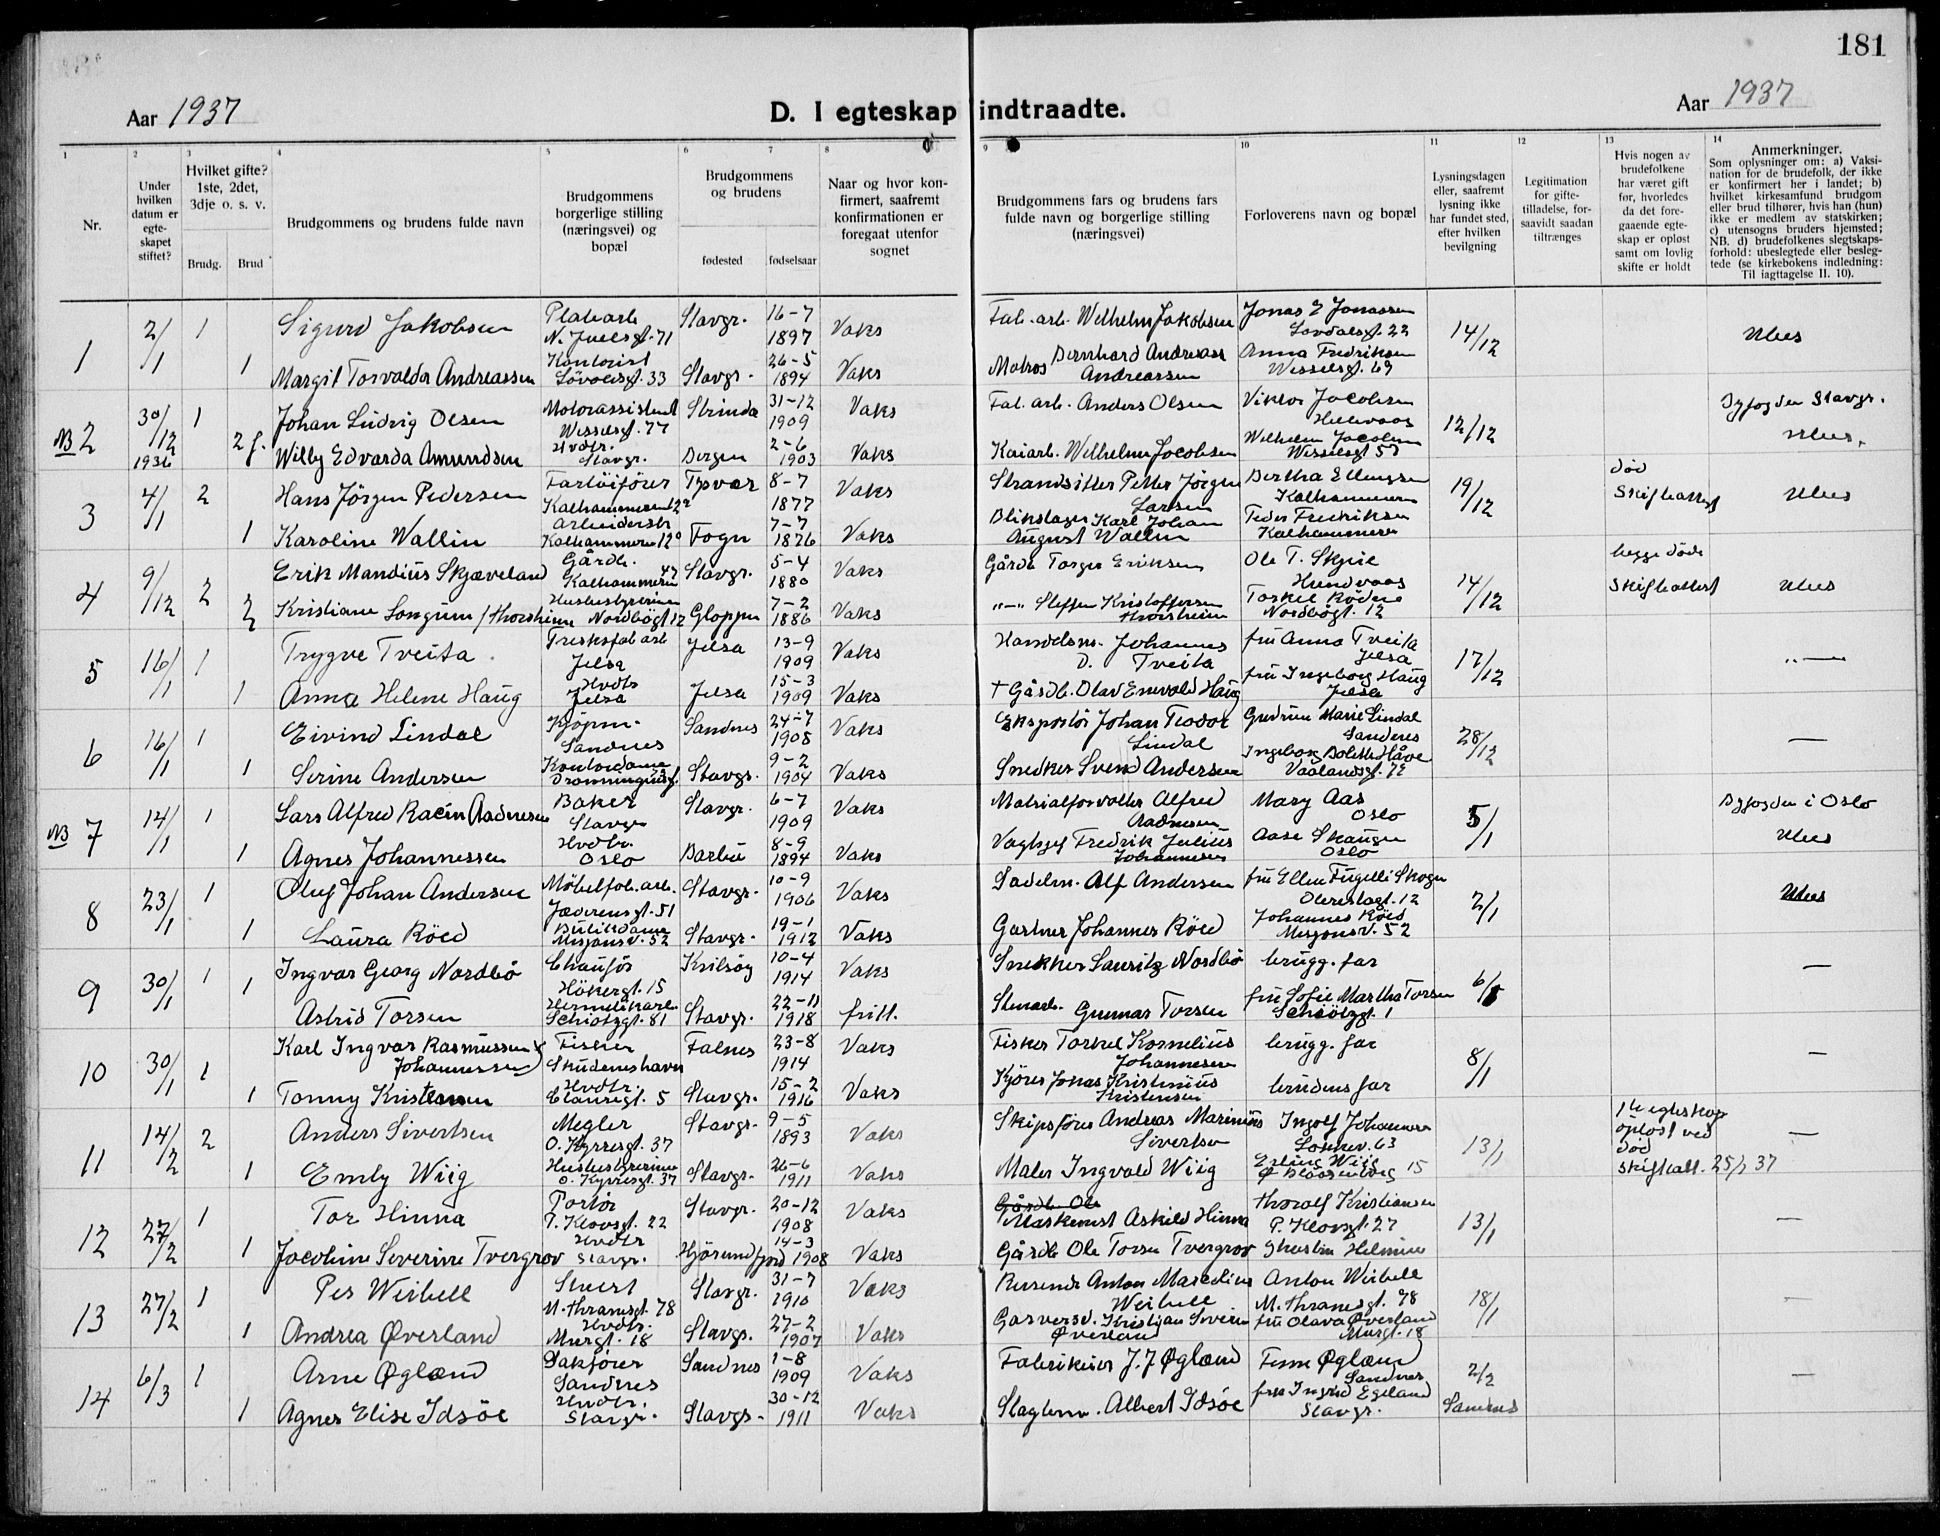 181
Aar 1937
D. I egteskap indtraadte.
Aar 1937
1
Nr.
2
Under hvilken datum er egte-skapet stiftet?
3
Hvilket gifte? 1ste, 2det, 3dje o. s. v.
Brudg.
Brud
4
Brudgommens og brudens fulde navn
5
Brudgommens borgerlige stilling (næringsvei) og bopæl
6
7
Brudgommens og brudens
fødested
fødselsaar
8
Naar og hvor kon-firmert, saafremt konfirmationen er foregaat utenfor sognet
9
Brudgommens fars og brudens fars fulde navn og borgerlige stilling (næringsvei)
10
Forloverens navn og bopæl
11
Lysningsdagen eller, saafremt lysning ikke har fundet sted, efter hvilken bevilgning
12
Legitimation for gifte-tilladelse, for-saavidt saadan tiltrænges
13
Hvis nogen av brudefolkene har været gift før, hvorledes da det fore-gaaende egte-skap er opløst samt om lovlig skifte er holdt
14
Anmerkninger.
Som oplysninger om: a) Vaksi-nation for de brudefolk, der ikke er konfirmert her i landet; b) hvilket kirkesamfund brudgom eller brud tilhører, hvis han (hun) ikke er medlem av statskirken; c) utensogns bruders hjemsted; NB. d) brudefolkenes slegtskaps-forhold: ubeslegtede eller besleg-tede (se kirkebokens indledning: Til iagttagelse II. 10).
1 2/1 1 Sigurd Jakobsen N. Juelsgt. 71 Stavgr. 16-7 1897 Vaks Fab. arb. Wilhelm Jakobsen Jonas E Jonassen 14/12 Ubes
1 Margit Torvalda Andreassen Kontorist 33 Stavgr. 26-5 1894 Vaks Matros Bernhard Andreas Andreassen Anna Fredriksen Wesselsgt. 69
NB 2 30/12 1936 1 Johan Ludvig Olsen Motorassistent Wesselsgt. 77 Strinda 31-12 1909 Vaks Fab. arb. Anders Olsen Viktor Jacobsen 12/12 Byfogden Stavgr.
2 f. Willy Edvarda Amundsen Hvdtr. Stavgr. Bergen 2-6 1903 Vaks Kaiarb. Wilhelm Jacobsen Wilhelm Jacobsen Wesselsgt 57 Ubes.
3 4/1 2 Hans Jörgen Pedersen Fartöiförer Kalhammeren Tysvær 8-7 1877 Vaks Strandsitter Petter Jörgen Larsen Bertha Ellingsen Kalhammeren 19/12 död Skifteattest Ubes
1 Karoline Wallin Kalhammeren Fogn 7-7 1876 Vaks Blikslager Karl Johan August Wallin Peder Fredriksen Kalhammeren
4 9/12 2 Erik Mandius Skjæveland Gårdb. Kalhammeren 47 Stavgr. 5-4 1880 Vaks Gårdb Torger Eriksen Ole T. Skjie Hundvaag 14/12 begge döde Skifteattest Ubes
2 Kristiane Longum / Thorsheim Husbestyrerinne Nordbögt 12 Gloppen 7-2 1886 Vaks Steffen Kristoffersen Thorsheim Torkel Rödne Nordbögt. 12
5 16/1 1 Trygve Tveita Jelsa Jelsa 13-9 1909 Vaks Handelsm. Johannes D. Tveita fru Anna Tveita Jelsa 17/12
1 Anna Helene Haug Hvdtr Jelsa Jelsa 15-3 1909 Vaks + Gårdb. Olav Enevold Haug fru Ingeborg Haug Jelsa
6 16/1 1 Eivind Lindal Kjöpm. Sandnes Sandnes 24-7 1908 Vaks Ekspeditör Johan Teodor Lindal Gudrun Marie Lindal Sandnes 28/12 —
1 Serine Andersen Kontordame Stavgr. 9-2 1904 Vaks Snedker Svend Andersen Ingeborg Bolette Håve Vaalandsgt. 72
NB 7 14/1 1 Lars Alfred Racin Aadnesen Baker Stavgr Stavgr. 6-7 1909 Vaks Matrialforvalter Alfred Aadnesen Mary Aas Oslo 5/1 Byfogden i Oslo
1 Agnes Johannessen Hvdtr. Oslo Barbu 8-9 1894 Vaks Fredrik Julius Johannesen Aase Skaugen Oslo Ubes
8 23/1 1 Oluf Johan Andersen Möbelfab. arb. Jæderensgt. 51 Stavgr. 10-9 1906 Vaks Sadelm. Alf Andersen fru Ellen Fugelli Skogen 12 2/1 Ubes
1 Laura Röed Butikdame Misjonsv. 52 Stavgr. 19-1 1912 Vaks Gartner Johannes Röed Johannes Röed Misjonsv. 52
9 30/1 1 Ingvar Georg Nordbö Chauför Hökergt. 15 Kvitsöy 10-4 1914 Vaks Snekker Lauritz Nordbö brugg. far 6/1 —
1 Astrid Torsen Schiötzgt. 81 Stavgr. 22-11 1918 fritt. Gunnar Torsen fru Sofie Martha Torsen
10 30/1 1 Karl Ingvar Rasmussen Johannessen Fisker Skudeneshavn Falnes 23-8 1914 Vaks Fisker Torkel Kornelius Johannesen brugg. far 8/1 —
1 Tonny Kristensen Hvdtr. 5 Stavgr. 15-2 1916 Vaks Kjörer Jonas Kristinius Kristensen brudens far
11 14/2 2 Anders Sivertsen Megler O. Kyrresgt. 37 Stavgr. 9-5 1893 Vaks Skipsförer Andreas Marinius Sivertsen Ingolf Johannesen 63 13/1 1te egteskap oplöst ved död Skifteatt. 25/1 37 —
1 Emly Wiig Husbestyrerinne O. Kyrresgt. 37 Stavgr. 26-6 1911 Vaks Maler Ingvald Wiig Erling Wiig 15
12 27/2 1 Tor Hinna Portör P. Klowsgt. 22 Stavgr. 20-12 1908 Vaks Gårdb Ole Maskinist Askild Hinna Thoralf Kristiansen P. Klowsgt. 27 13/1 —
1 Jacobine Severine Tvergrov Hvdtr Stavgr. Hjörundfjord 14-3 1908 Vaks Gårdb Ole Torsen Tvergrov
13 27/2 1 Per Weibell Stuert M. Thranesgt. 78 Stavgr. 31-7 1910 Vaks Anton Marcelius Weibell Anton Weibell M. Thranesgt. 78 18/1 —
1 Andrea Øverland Hvdtr. Murgt. 18 Stavgr. 27-2 1907 Vaks Kristian Severin Øverland fru Olava Øverland Murgt. 18
14 6/3 1 Arne Øglænd Sakförer Sandnes Sandnes 1-8 1909 Vaks Fabrikeier J. J Øglænd Finn Øglænd Sandnes 2/2 —
1 Agnes Elise Idsöe Hvdtr. Stavgr. Stavgr. 30-12 1911 Vaks Albert Idsöe fru Ingrid Egeland Stavgr. Sandnes